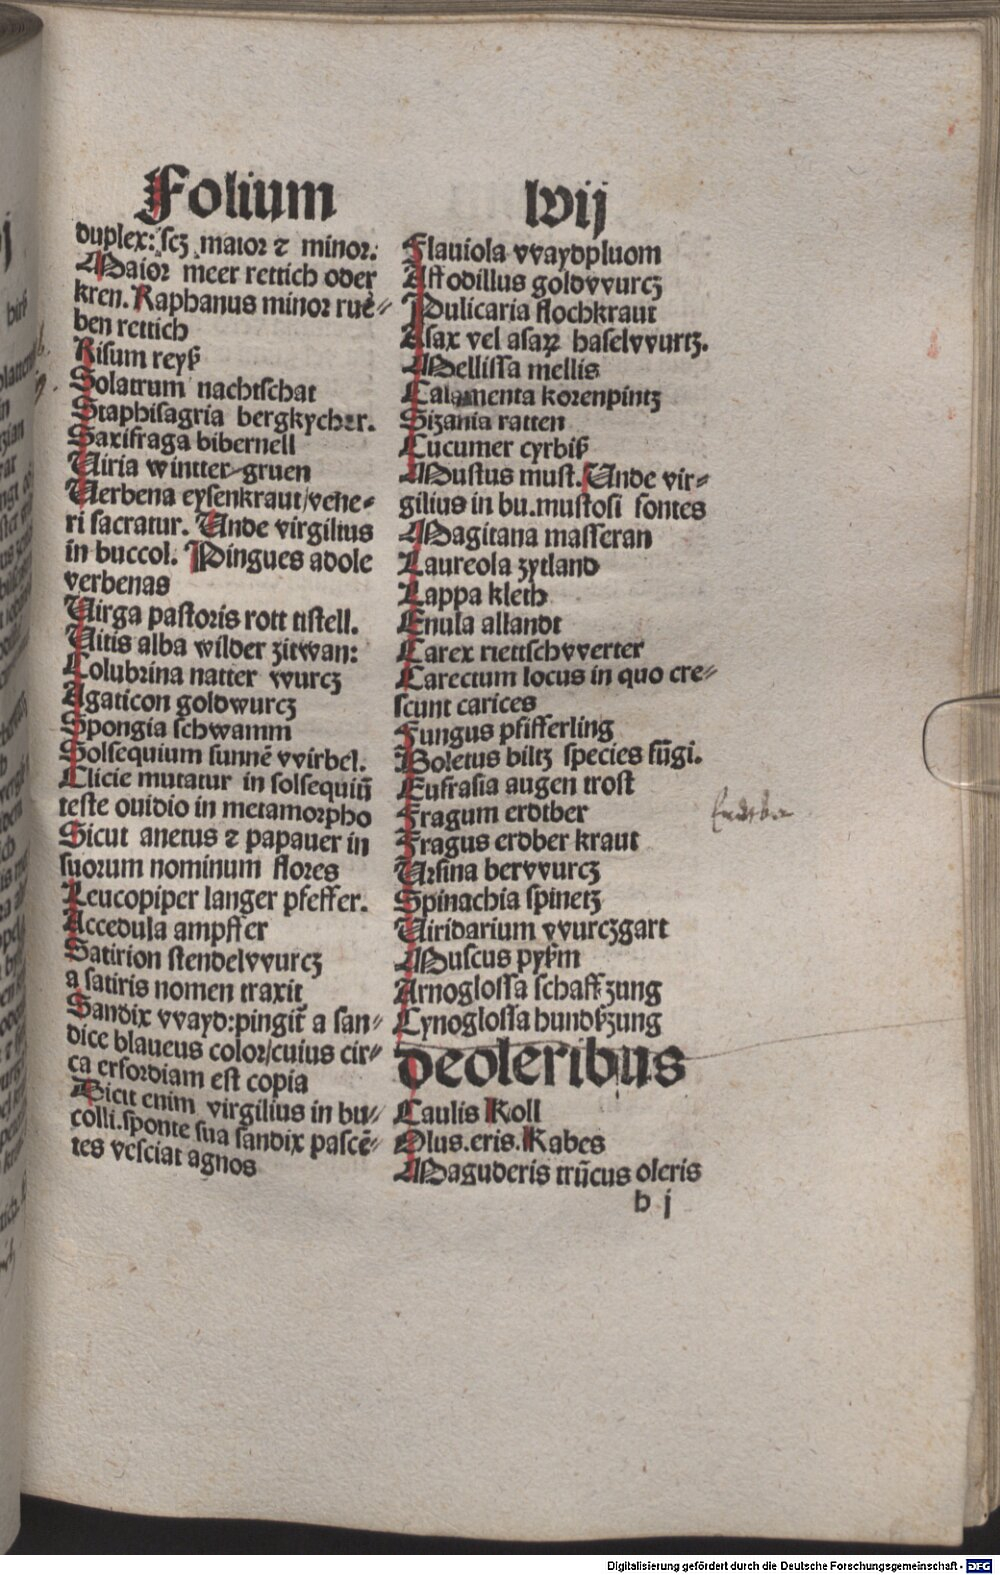 Folium lvij
duplex: scꝫ maior ⁊ minor.
Maior meer rettich oder
kren. Raphanus minor rue⸗
ben rettich
Risum reyß
Solatrum nachtschat
Staphisagria bergkycher.
Saxifraga bibernell
Viria wintter gruen
Verbena eysenkraut/vene⸗
ri sacratur. Unde virgilius
in buccol. Pingues adole
verbenas
Virga pastoris rott tistell.
Vitis alba wilder zitwan:
Colubrina natter wurcz
Agaticon goldwurcz
Spongia schwamm
Solsequium sunnē vvirbel.
Clicie mutatur in solsequiū
teste ouidio in metamorpho
Sicut anetus ⁊ papauer in
suorum nominum flores
Leucopiper langer pfeffer.
Accedula ampffer
Satirion stendelvvurcz
a satiris nomen traxit
Sandix vvayd:pingit᷑ a san⸗
dice blaueus color/cuius cir⸗
ca erfordiam est copia
Dicit enim virgilius in bu⸗
colli.sponte sua sandix pascē⸗
tes vesciat agnos
Flauiola vvaydpluom
Affodillus goldvvurcz
Pulicaria flochkraut
Asax vel asaꝝ haselvvurtz.
Mellissa mellis
Calamenta korenpintz
Sizania ratten
Cucumer cyrbiß
Mustus must. Unde vir⸗
gilius in bu.mustosi fontes
Magitana masseran
Laureola zytland
Lappa kleth
Enula allandt
Carex riettschvverter
Carectum locus in quo cre⸗
scunt carices
Fungus pfifferling
Boletus biltz species fūgi.
Eufrasia augen trost
Fragum erdtber
Fragus erdber kraut
Ursina bervvurcz
Spinachia spinetz
Viridarium vvurczgart
Muscus pyßm
Arnoglossa schaffzung
Cynoglossa hundßzung
deoleribus
Caulis Koll
Olus.eris.Kabes
Maguderis trūcus oleris
b j
Digitalisierung gefördert durch die Deutsche Forschungsgemeinschaft - DFG